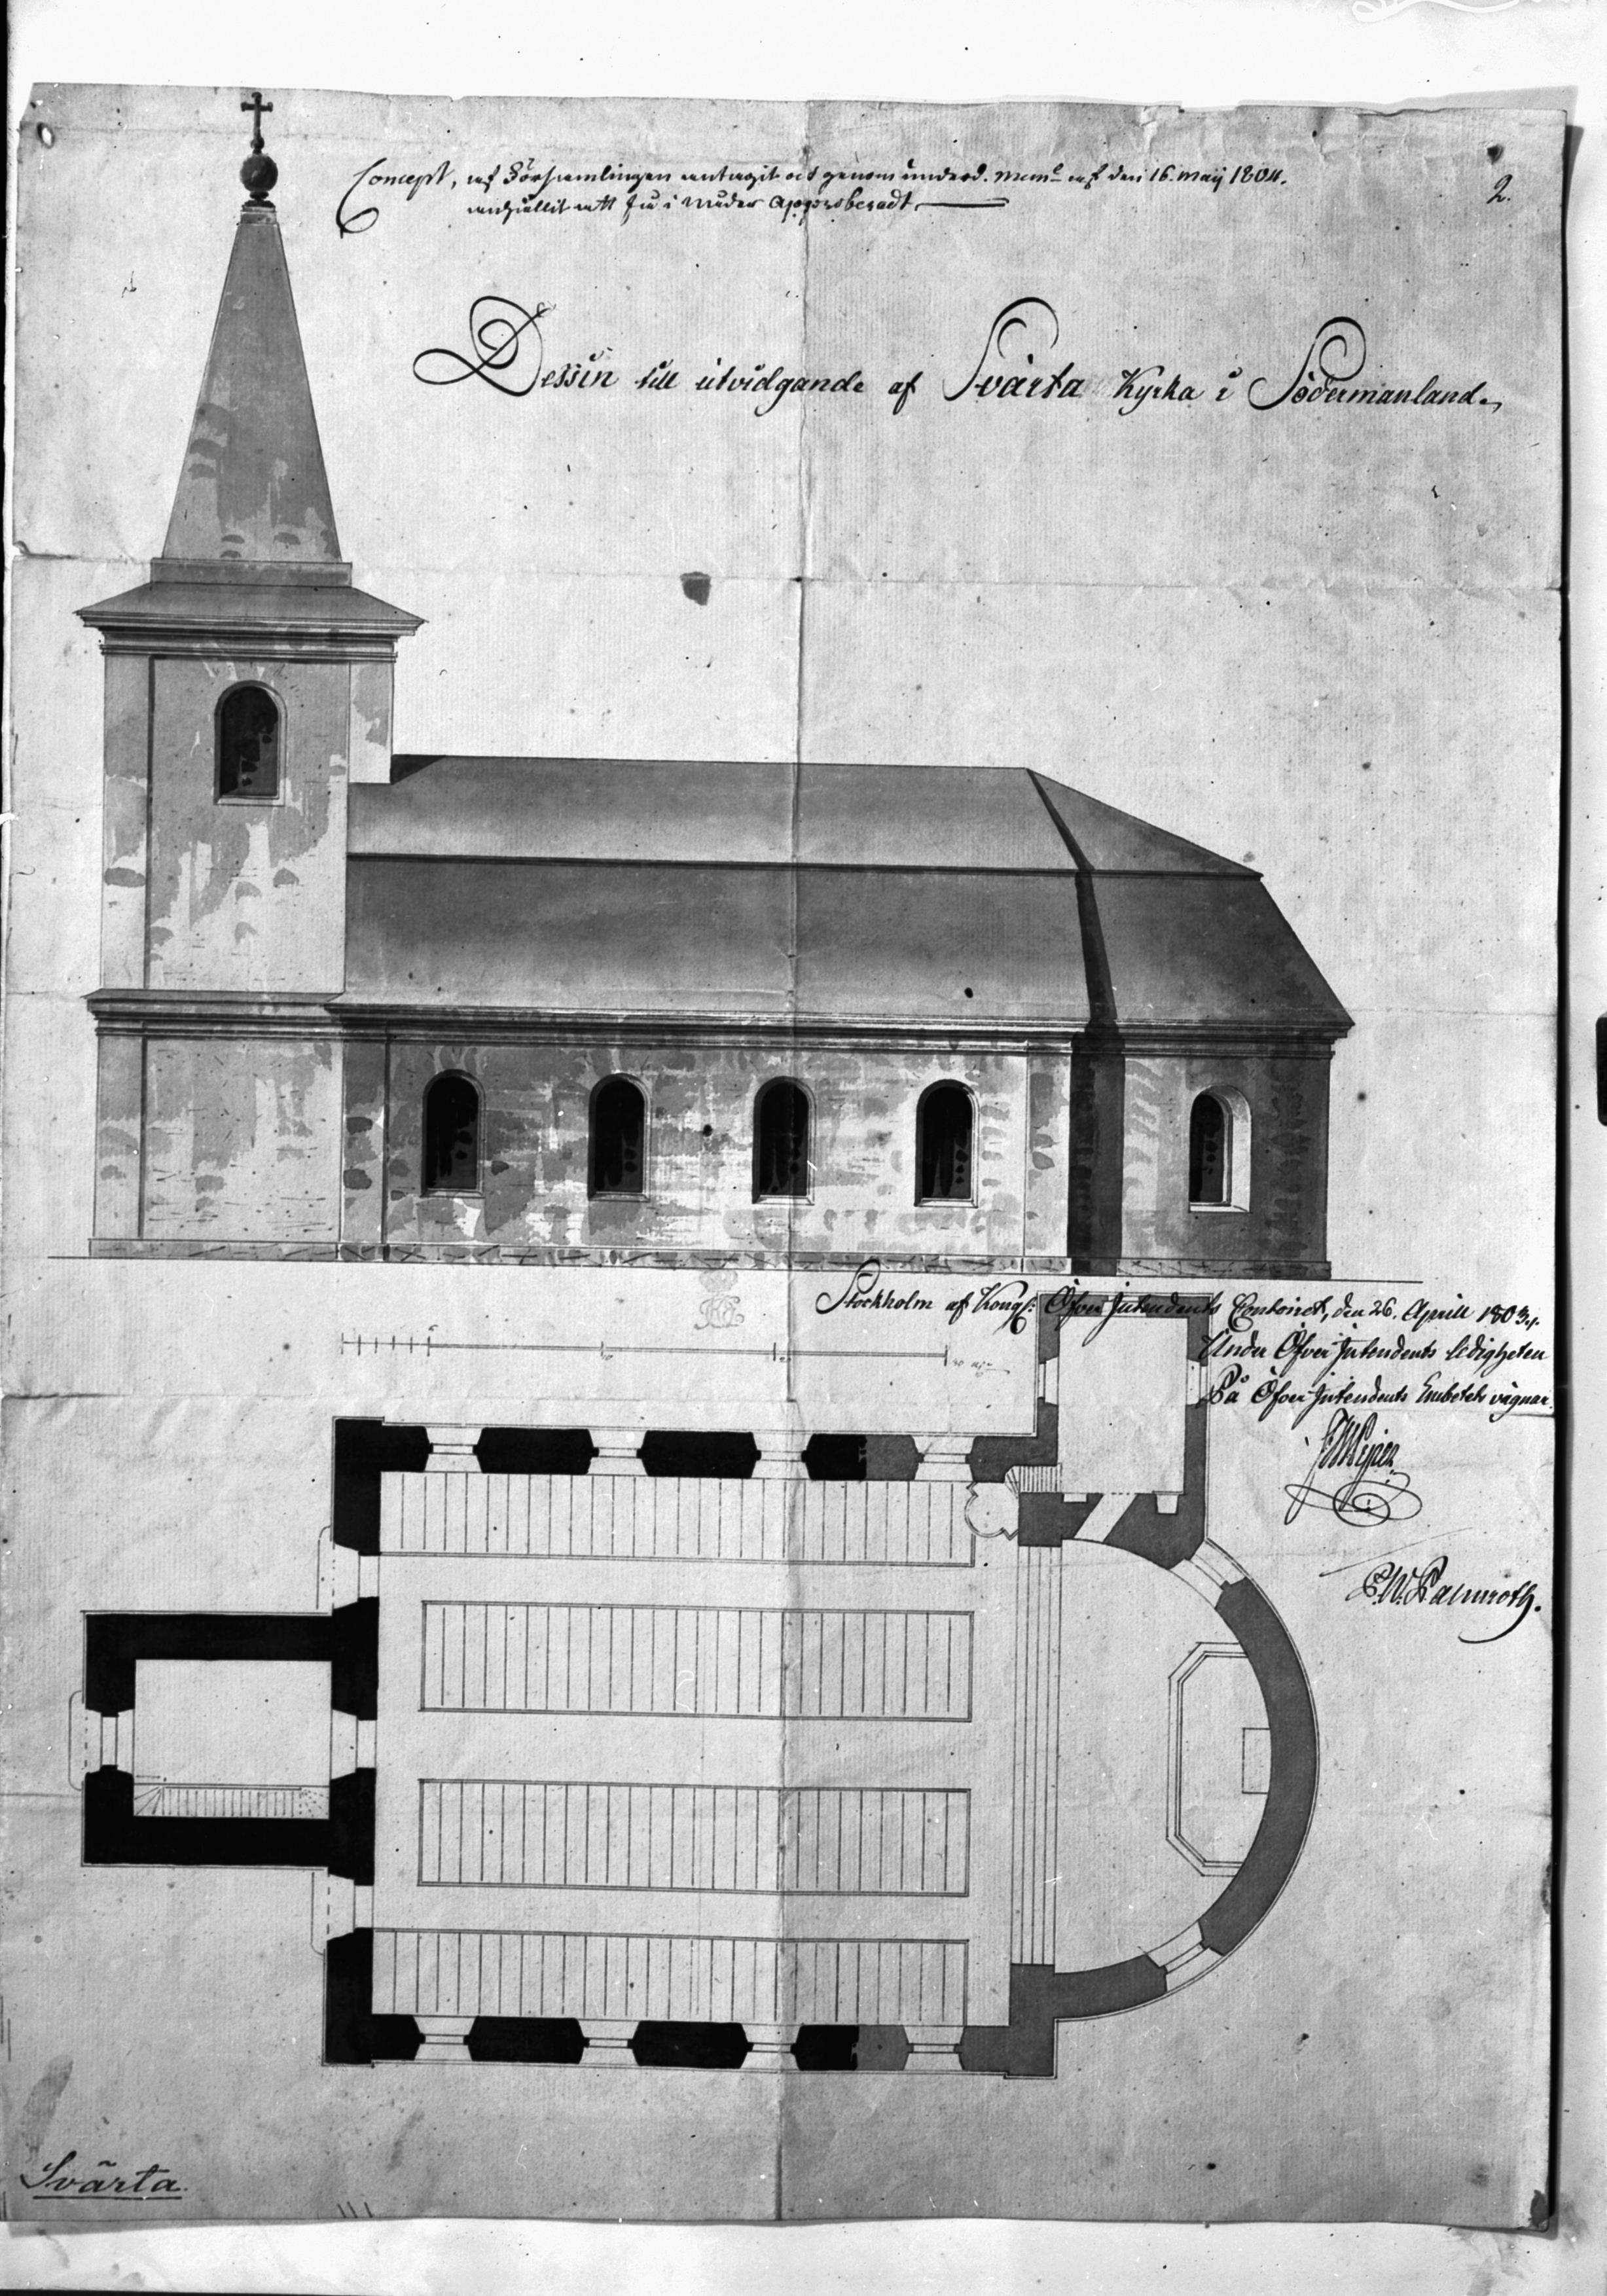 Concept, af Församlingen antagit och genom underd. mem.l af den 16. maij 1804.
anhållit att få i nåder approberadt
2.
Dessin till utvidgande af Svärta Kyrka i Södermanland.
Stockholm af Kongl: Öfver Intendents Contoiret, den 26. Aprill 1803.
Under Öfver Intendents ledigheten
På Öfver Intendents Embetets vägnar.
C.W. Palmroth.
Svärta.